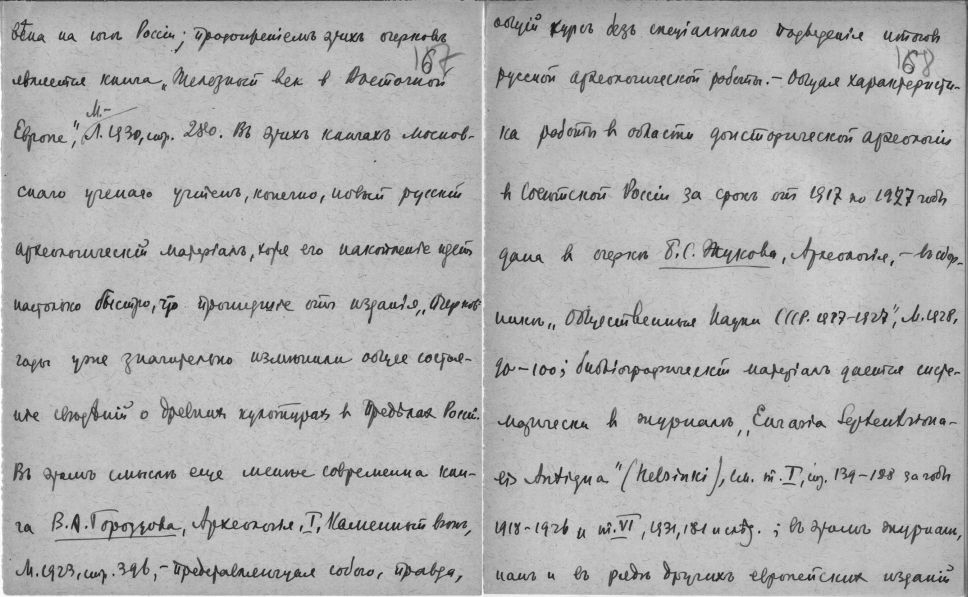 вѣка на югѣ Россіи; продолженіемъ этихъ очерковъ
167
является книга „Железный век в Восточной
М.-
Европе“, Л. 1930, стр. 280. Въ этихъ книгахъ москов-
скаго ученаго учтенъ, конечно, новый русскій
археологическій матеріалъ, хотя его накопленіе идетъ
настолько быстро, что прошедшіе отъ изданія „Очерков“
годы уже значительно измѣнили общее состоя-
ніе свѣдѣній о древнихъ культурахъ в предѣлахъ Россіи.
Въ этомъ смыслѣ еще менѣе современна кни-
га В.А. Городцова, Археологія, I, Каменный вѣкъ,
М. 1923, стр. 396, – представляющая собою, правда,
общій курсъ безъ спеціальнаго подведенія итоговъ
168
русской археологической работы. – Общая характеристи-
ка работы в области доисторической археологіи
в Совѣтской Россіи за срокъ отъ 1917 по 1927 годъ
дана в очеркѣ Б.С. Жукова, Археологія, – въ сбор-
никѣ „Общественныя Науки СССР. 1917-1927“, М. 1928,
90-100; библіографическій матеріалъ дается систе-
матически в журналѣ „Eurasia Septentriona-
lis Antiqua“ (Helsinki), см. т. I, стр. 139-188 за годы
1918-1926 и т. VI, 1931, 181 и слѣд.; въ этомъ журналѣ,
какъ и в рядѣ другихъ европейскихъ изданій